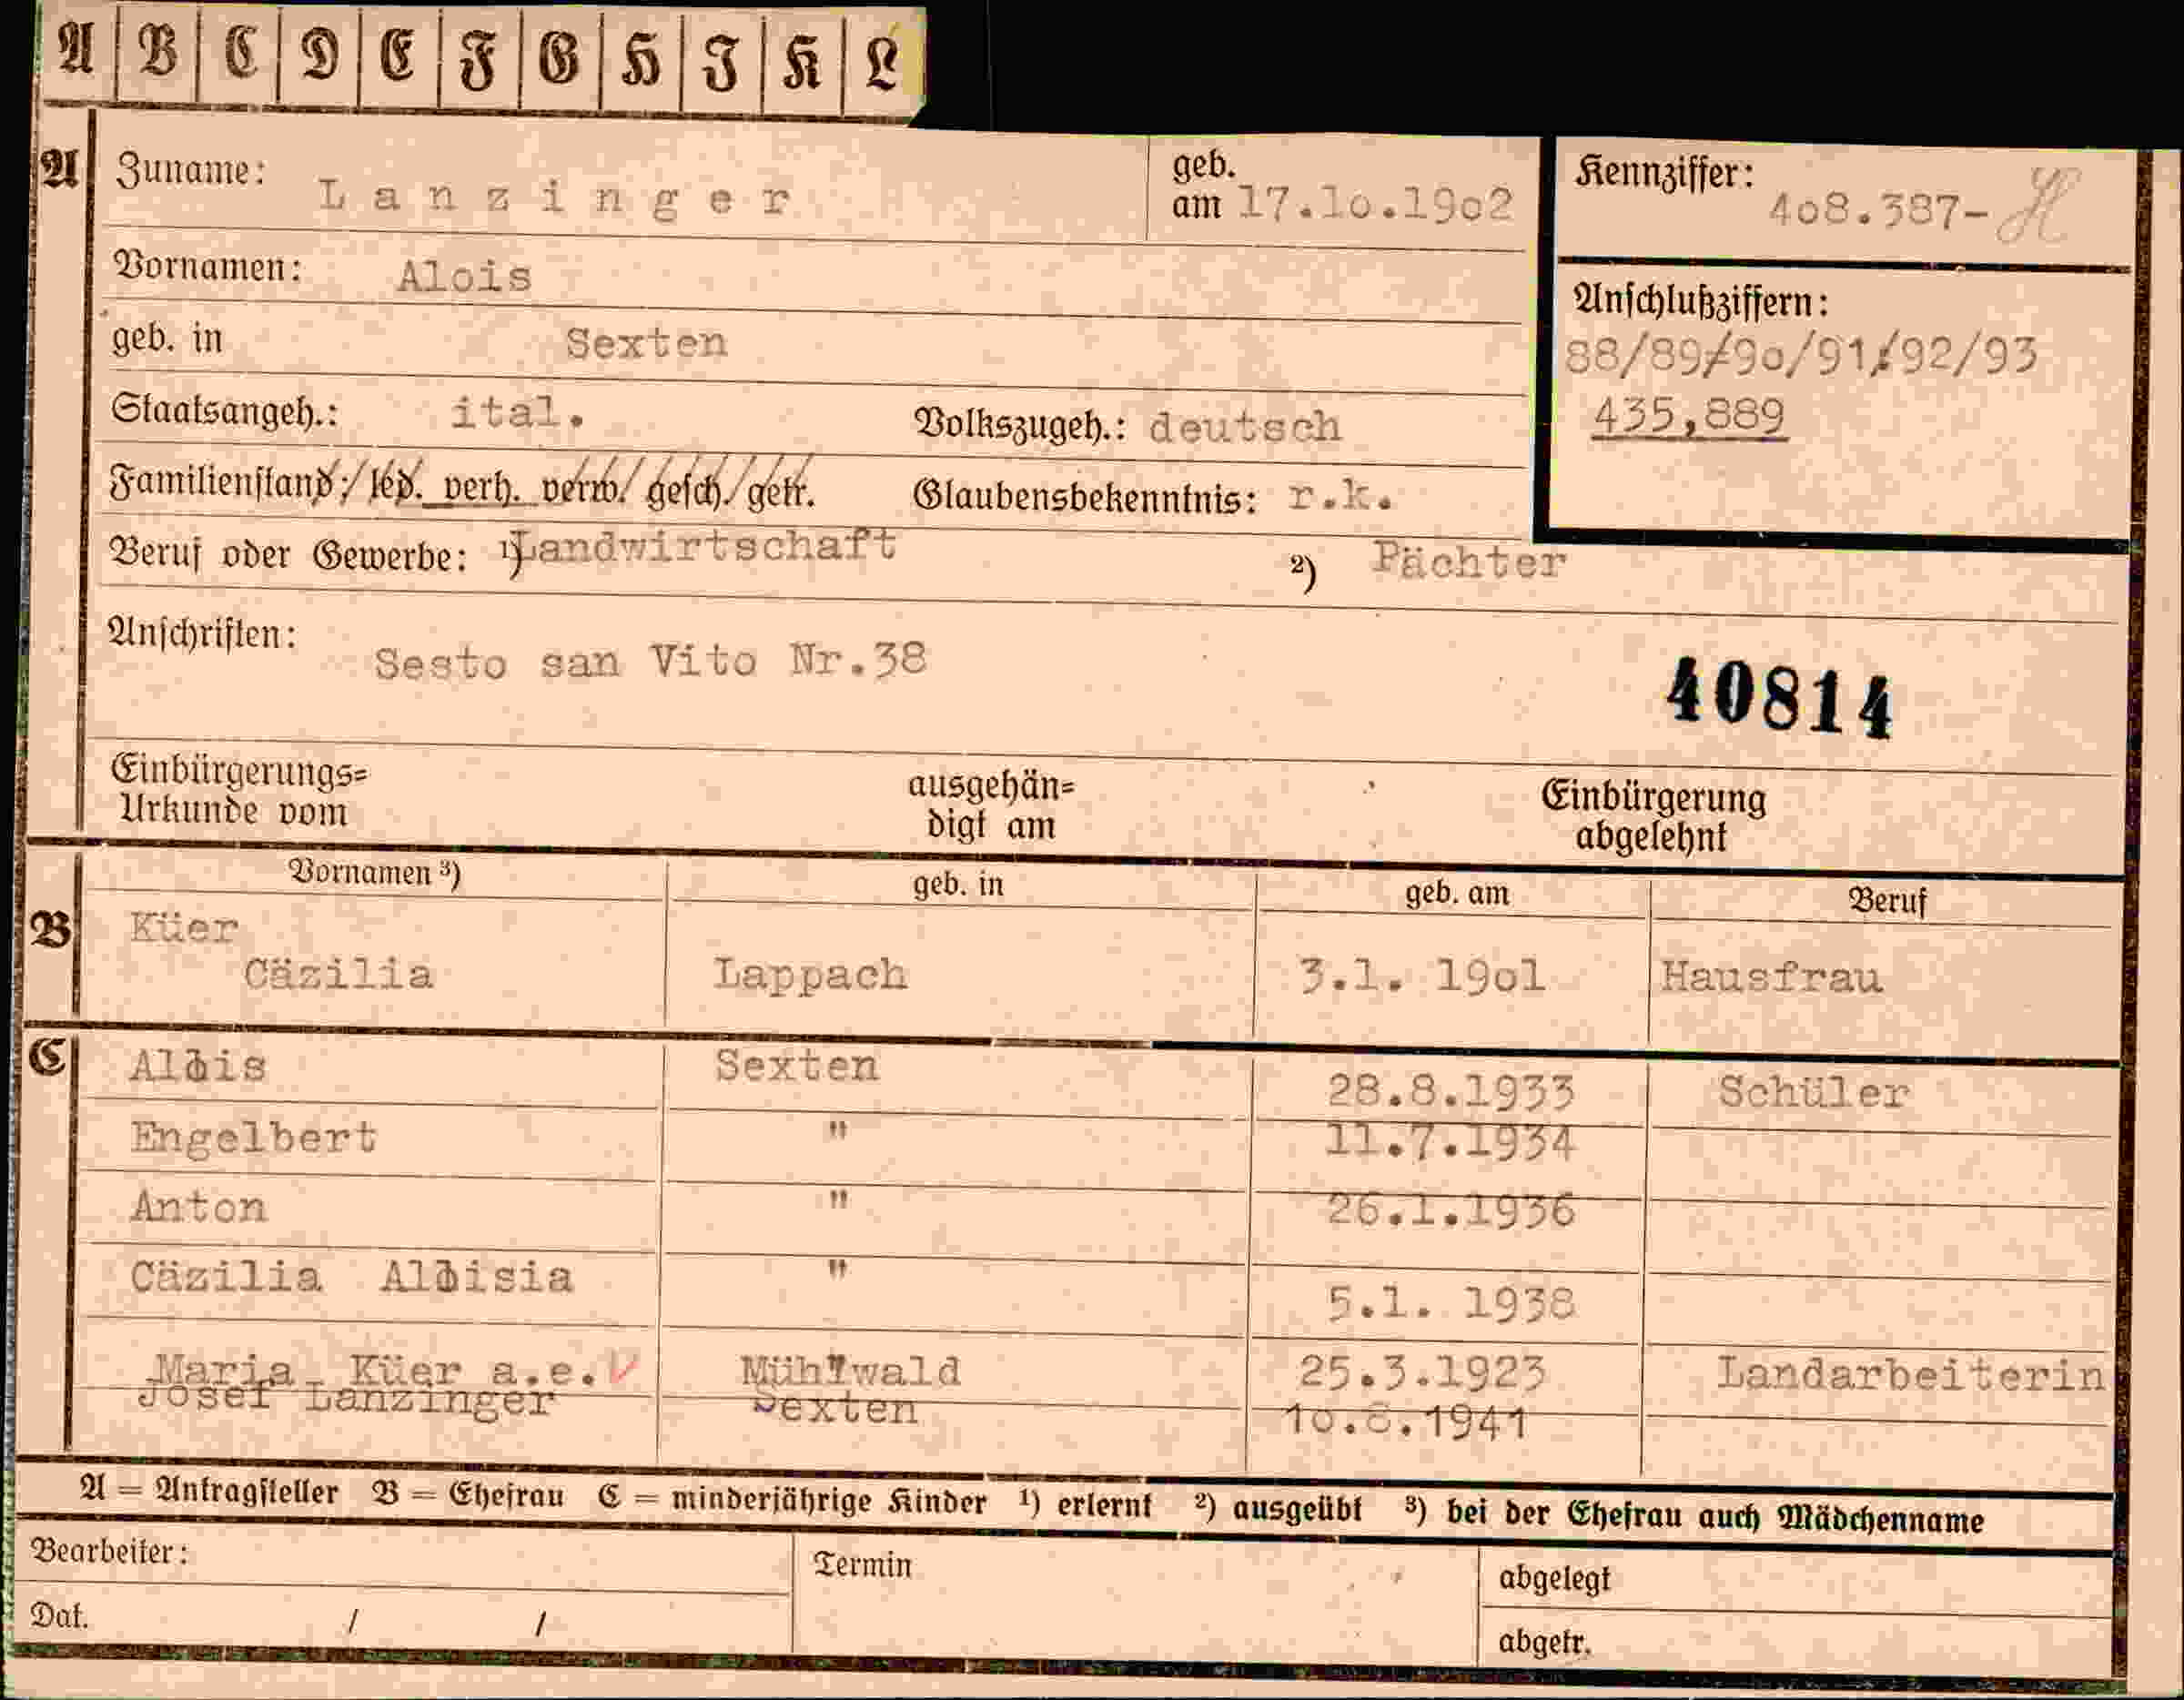 A B C D E F G H I K L
A Zuname: Lanzinger geb. am 17.10.1902 Kennziffer: 408.387- H
Vornamen: Alois
geb. in Sexten Anschlußziffern:
88/89/90/91/92/93
Staatsangeh.: ital. Volkszugeh.: deutsch 435,889
Familienstand: led. verh. verw. gesch. getr. Glaubensbekenntnis: r.k.
Beruf oder Gewerbe: ¹) Landwirtschaft ²) Pächter
Anschriften: Sesto san Vito Nr.38
40814
Einbürgerungs= ausgehän= Einbürgerung
Urkunde vom digt am abgelehnt
Vornamen ³) geb. in geb. am Beruf
B Küer
Cäzilia Lappach 3.1. 1901 Hausfrau
C Alois Sexten 28.8.1933 Schüler
Engelbert " 11.7.1934
Anton " 26.1.1936
Cäzilia Aloisia " 5.1. 1938
Maria Küer a.e. Mühlwald 25.3.1923 Landarbeiterin
Josef Lanzinger Sexten 10.8.1941
A = Antragsteller B = Ehefrau C = minderjährige Kinder ¹) erlernt ²) ausgeübt ³) bei der Ehefrau auch Mädchenname
Bearbeiter: Termin abgelegt
Dat. / / abgetr.